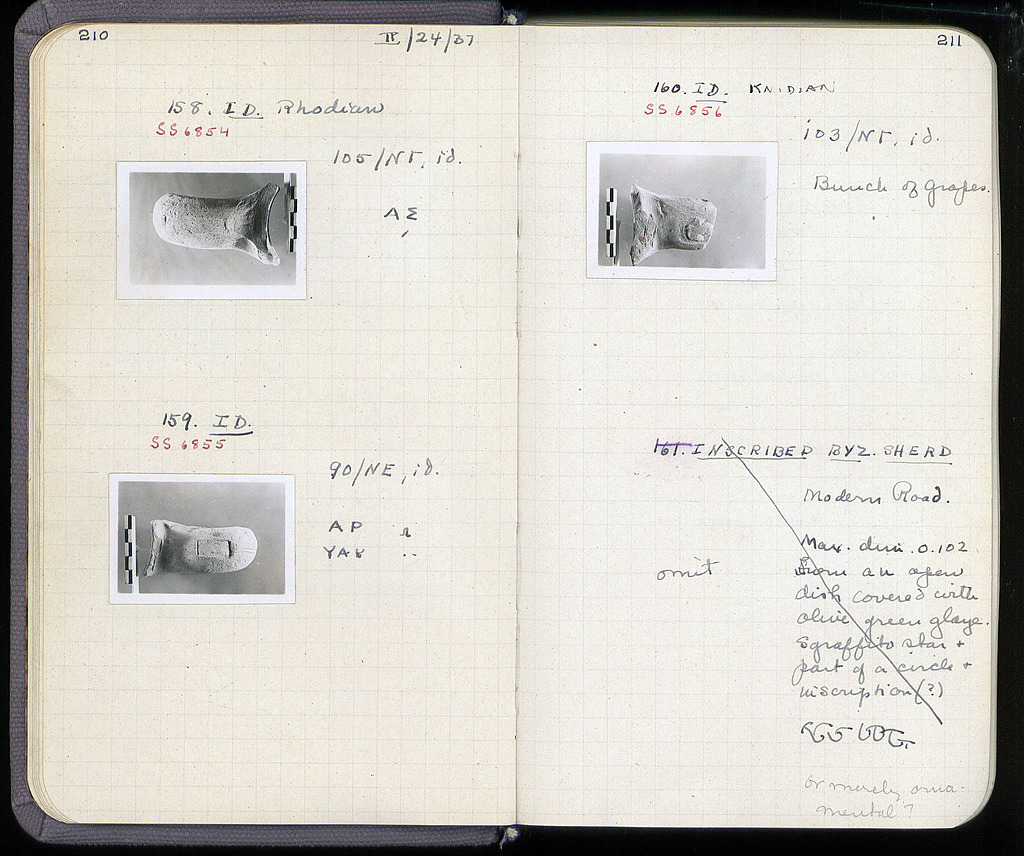 210
II/24/37
158. ID. Rhodian
SS 6854
105/ΝΓ, id.
ΑΣ
159. ID.
SS 6855
90/NE, id.
ΑΡ
ΥΑΚ
211
160. ID. KNIDIAN
SS 6856
103/ΝΓ, id.
Bunch of grapes.
161. INSCRIBED BYZ. SHERD
Modern Road.
Max. dim. 0.102
omit
From an open
dish covered with
olive green glaze.
Sgraffito star +
part of a circle +
inscription (?)
or merely orna-
mental?